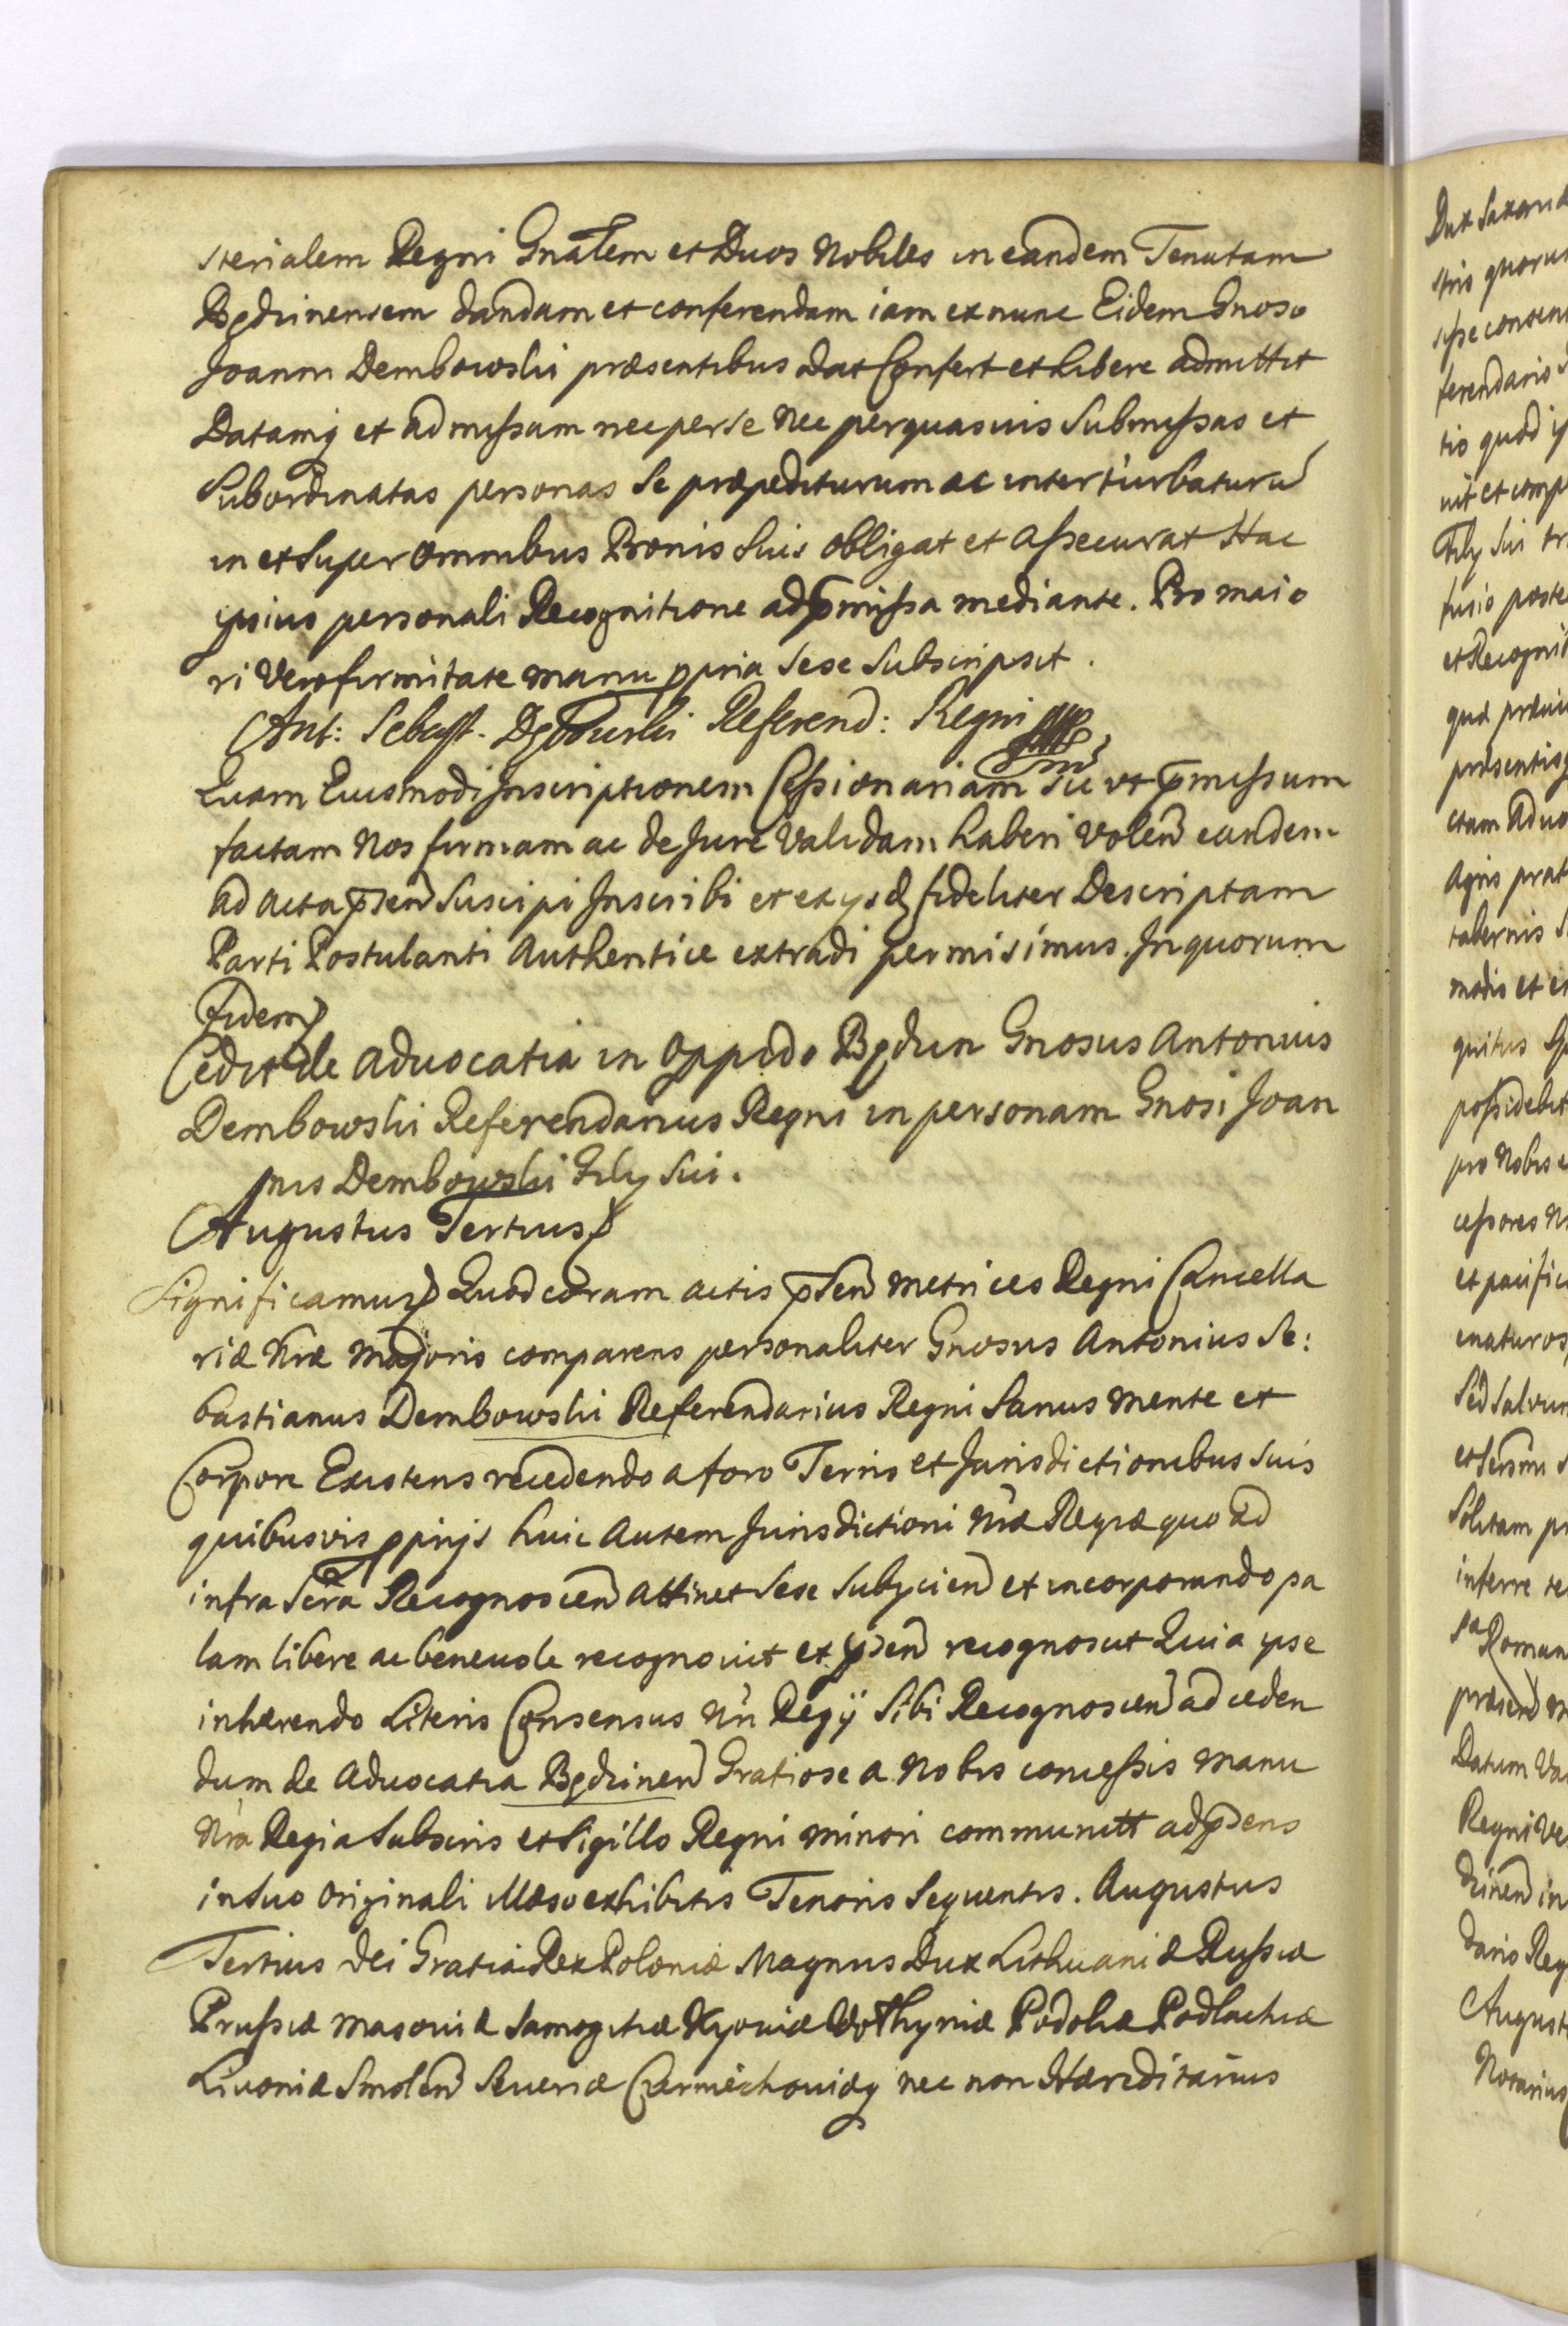 sterialem Regni Gnalem et Duos Nobiles in eandem Tenutam
Będzinensem dandam et conferendam iam ex nunc Eidem Gnoso
Joanni Dembowski præsentibus dat Confert et Libere admittit
Datamq et admissam nec per se nec per quasuis Submissas et
Subordinatas personas se præpediturum ac interturbaturū
in et super omnibus Bonis suis obligat et assecurat Hac
ipsius personali Recognitione ad p̄missa mediante. Pro maio
ri Vero firmitate manu ppria sese subscripsit.
Ant: Sebast. Dębowski Referend: Regni mp
Quam Eiusmodi Inscriptionem Cessionariam sic ut p̄missum
factam Nos firmam ac de Jure Validam haberi volen eandem
ad acta p̄sen suscipi Inscribi et ex ijsdē fideliter Descriptam
Parti Postulanti Authentice extradi permisimus. In quorum
fidem
Cedit de aduocatia in oppido Będzin Gnosus Antonius
Dembowski Referendarius Regni in personam Gnosi Joan
nis Dembowski Filij sui.
Augustus Tertius
Significamus Quod coram actis p̄sen metrices Regni Cancella
riæ Nræ Majoris comparens personaliter Gnosus Antonius Se:
bastianus Dembowski Referendarius Regni Sanus mente et
Corpore Existens recedendo a foro Terris et Jurisdictionibus suis
quibusvis pprijs huic autem Jurisdictioni Nræ Regiæ quo ad
infra Scra Recognoscen attinet sese subijcien et incorporando pa
lam libere ac beneuole recognouit et p̄sen recognoscit Quia ipse
inhærendo Literis Consensus Nri Regÿ sibi Recognoscen ad ceden
dum de Aduocatia Będzinen Gratiose a Nobis concessis manu
Nra Regia Subscris et Sigillo Regni minori communitt ad p̄sens
in suo originali Illæso exhibitis Tenoris Sequentis. Augustus
Tertius Dei Gratia Rex Poloniæ Magnus Dux Lithuaniæ Russiæ
Prussiæ Masouiæ Samogitiæ Kyouiæ Volhyniæ Podoliæ Podlachiæ
Liuoniæ Smolen Seueriæ Czerniechouiæq nec non Hæreditarius
Dux Saxoniæ
ferendario
tio quod
uit et comp
Filij sui
et Recognit
præsentis
ctam Aduo
Agris prat
tabernis
modis et
possidebit
pro Nobis
cessores
et pacific
Sed salvum
Solitam
inferre
Roman
Datum
Regni
Augusti
Notarius